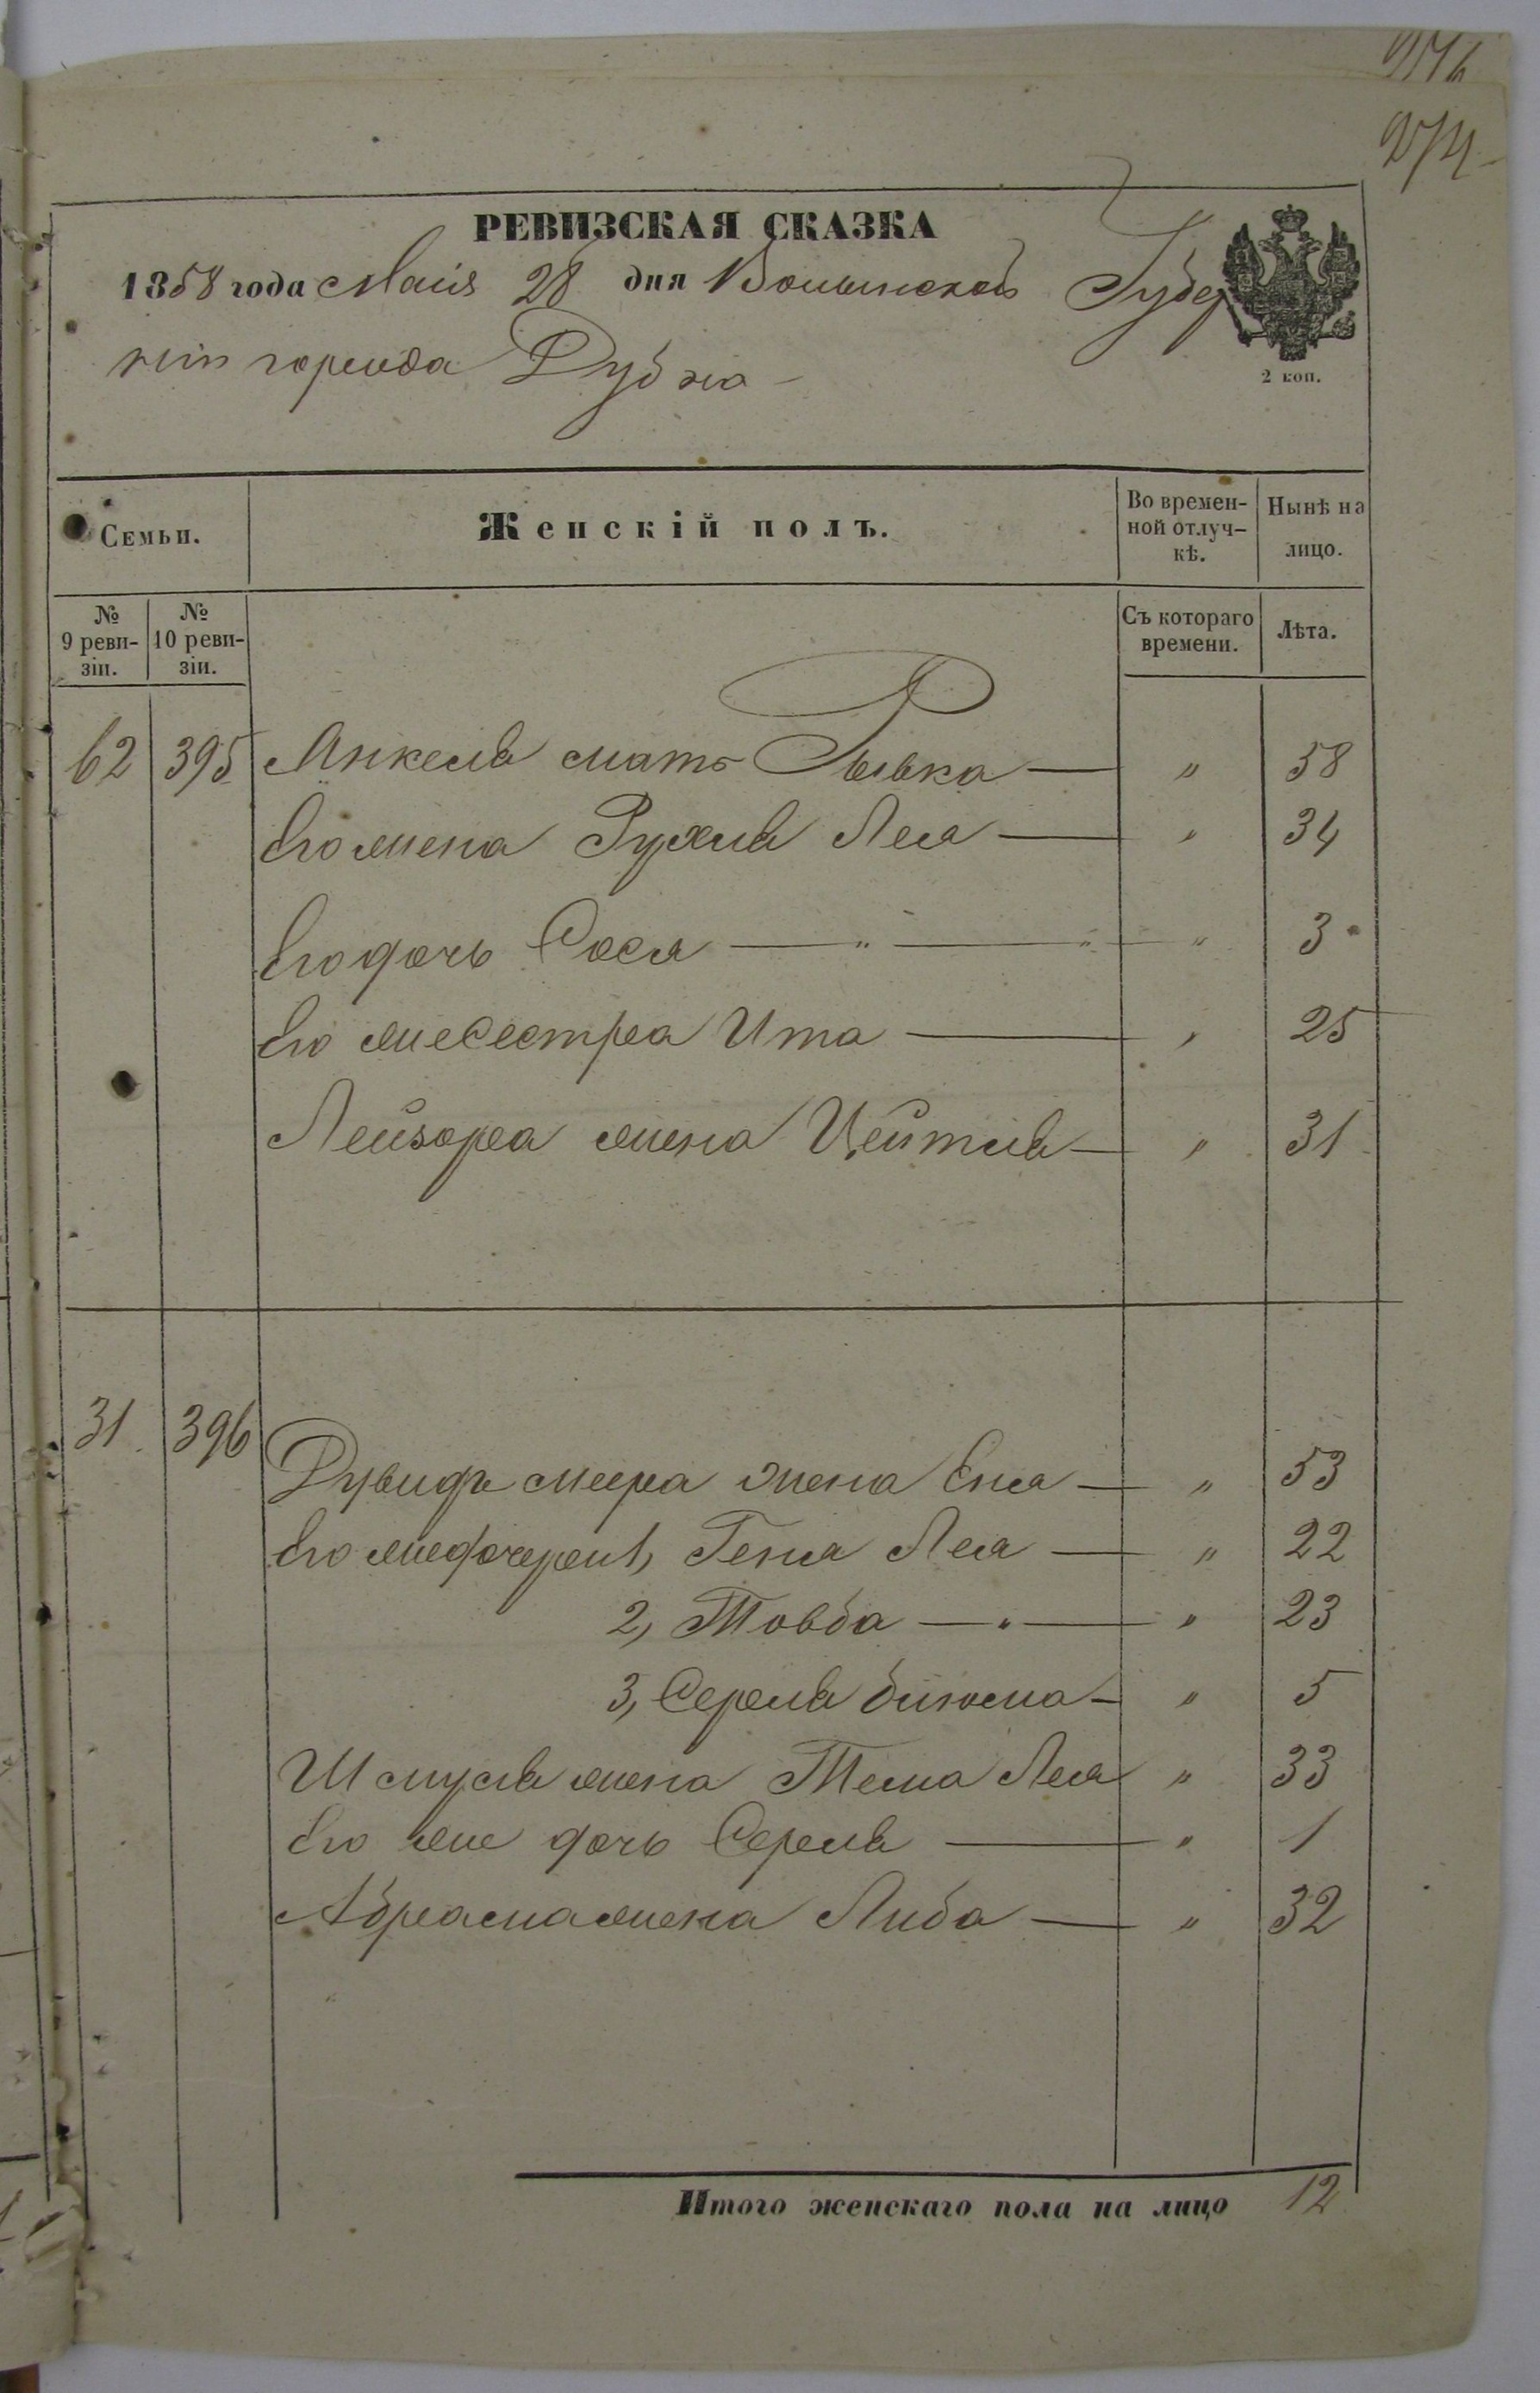 274
РЕВИЗСКАЯ СКАЗКА
1858 года Маія 28 дня Волынской Губер
ніи города Дубна
2 коп.
Семьи.
Женскій полъ.
Во времен-
ной отлуч-
кѣ.
Нынѣ на
лицо.
№
9 реви-
зіи.
№
10 реви-
зіи.
Съ котораго
времени.
Лѣта.
62 395 Янкеля мать Рывка — " 58
его жена Рухля Лея — " 34
его дочь Сося — " — " — " 3
его же сестра Ита — " 25
Лейзора жена Цейтля — " 31
31. 396
Дувидъ меера жена Еня — " 53
его же дочери 1, Геня Лея — " 22
2, Товба — " — " 23
3, Серля — " 5
Шмуля жена Тема Лея " 33
его же дочь Серля — " 1
Абрама жена Либа — " 32
Итого женскаго пола на лицо 12